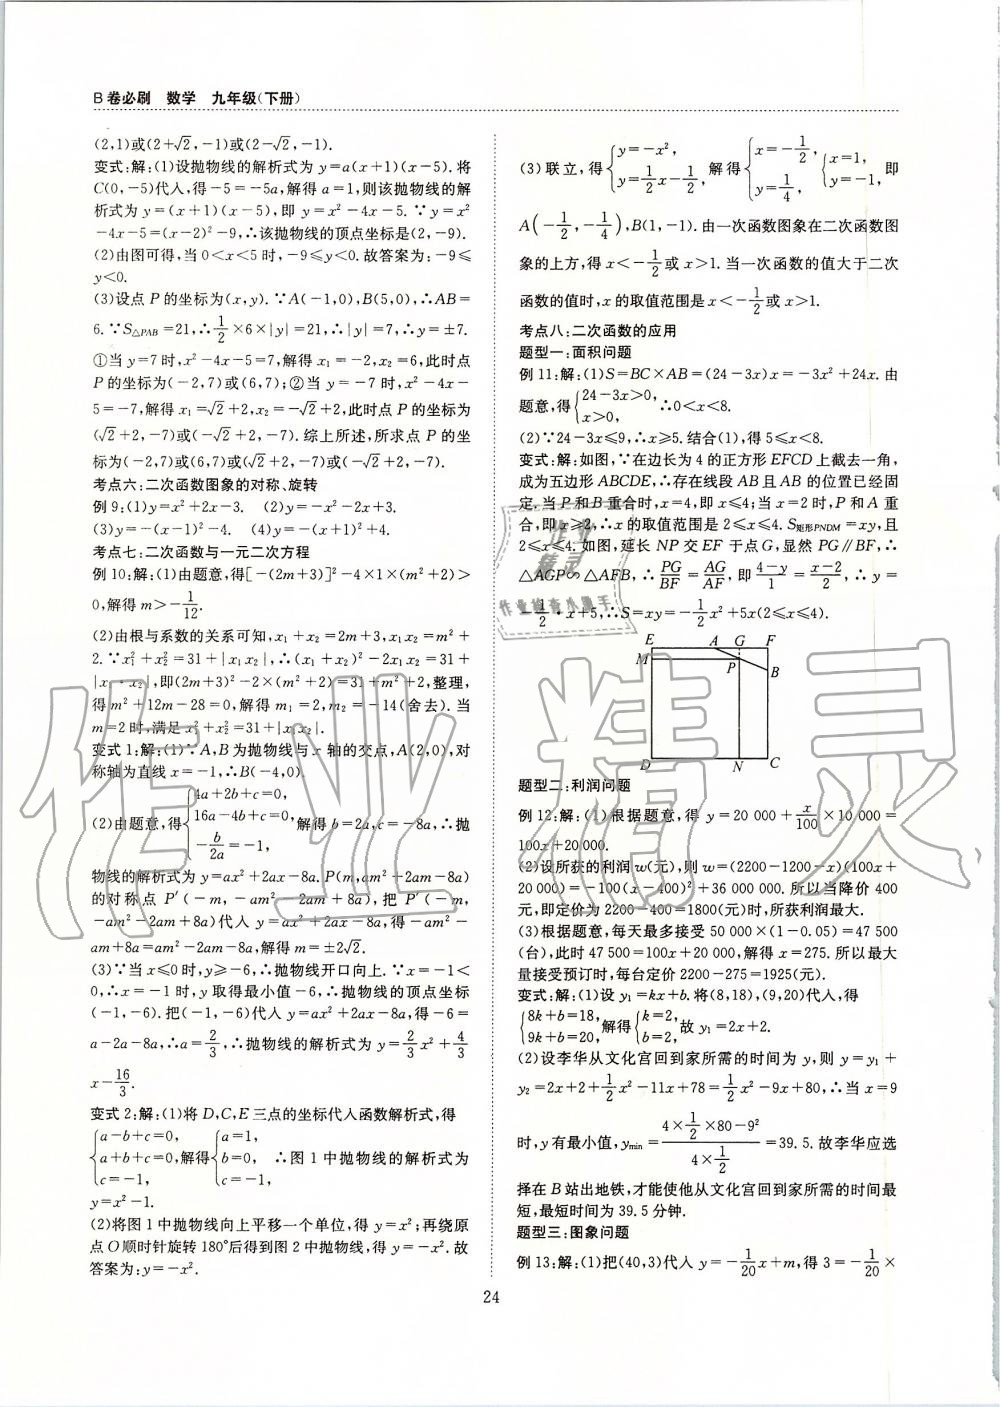 B卷必刷　数学　九年级(下册)
(2,1)或(2+√2,-1)或(2-√2,-1).
变式:解:(1)设抛物线的解析式为 y=a(x+1)(x-5). 将
C(0,-5)代人,得-5=-5a,解得 a=1,则该抛物线的解
析式为 y=(x+1)(x-5),即 y=x²-4x-5. ∵y=x²
-4x-5=(x-2)²-9,∴该抛物线的顶点坐标是(2,-9).
(2)由图可得,当 0<x<5 时,-9≤y<0. 故答案为:-9≤
y<0.
(3)设点 P 的坐标为(x,y). ∵A(-1,0),B(5,0),∴AB=
6. ∵S△PAB=21,∴1/2×6×|y|=21,∴|y|=7,∴y=±7.
①当 y=7 时,x²-4x-5=7,解得 x₁=-2,x₂=6,此时点
P 的坐标为(-2,7)或(6,7);②当 y=-7 时,x²-4x-
5=-7,解得 x₁=√2+2,x₂=-√2+2,此时点 P 的坐标为
(√2+2,-7)或(-√2+2,-7). 综上所述,所求点 P 的坐
标为(-2,7)或(6,7)或(√2+2,-7)或(-√2+2,-7).
考点六:二次函数图象的对称、旋转
例 9:(1)y=x²+2x-3.　(2)y=-x²-2x+3.
(3)y=-(x-1)²-4.　(4)y=-(x+1)²+4.
考点七:二次函数与一元二次方程
例 10:解:(1)由题意,得[-(2m+3)]²-4×1×(m²+2)>
0,解得 m>-1/12.
(2)由根与系数的关系可知,x₁+x₂=2m+3,x₁x₂=m²+
2. ∵x₁²+x₂²=31+|x₁x₂|,∴(x₁+x₂)²-2x₁x₂=31+
|x₁·x₂|,即(2m+3)²-2×(m²+2)=31+m²+2,整理,
得 m²+12m-28=0,解得 m₁=2,m₂=-14(舍去). 当
m=2 时,满足 x₁²+x₂²=31+|x₁x₂|.
变式 1:解:(1)∵A,B 为抛物线与 x 轴的交点,A(2,0),对
称轴为直线 x=-1,∴B(-4,0).
(2)由题意,得{4a+2b+c=0, 16a-4b+c=0, -b/2a=-1, 解得 b=2a,c=-8a,∴抛
物线的解析式为 y=ax²+2ax-8a. P(m,am²+2am-8a)
的对称点 P′(-m,-am²-2am+8a),把 P′(-m,
-am²-2am+8a)代人 y=ax²+2ax-8a,得-am²-
am+8a=am²-2am-8a,解得 m=±2√2.
(3)∵当 x≤0 时,y≥-6,∴抛物线开口向上. ∵x=-1<
0,∴x=-1 时,y 取得最小值-6,∴抛物线的顶点坐标
(-1,-6). 把(-1,-6)代人 y=ax²+2ax-8a,得-6=
a-2a-8a,∴a=2/3,∴抛物线的解析式为 y=2/3x²+4/3
x-16/3.
变式 2:解:(1)将 D,C,E 三点的坐标代人函数解析式,得
{a-b+c=0, a+b+c=0, c=-1, 解得{a=1, b=0, c=-1, ∴图 1 中抛物线的解析式为
y=x²-1.
(2)将图 1 中抛物线向上平移一个单位,得 y=x²;再绕原
点 O 顺时针旋转 180°后得到图 2 中抛物线,得 y=-x². 故
答案为:y=-x².
(3)联立,得{y=-x², y=1/2x-1/2, 解得{x=-1/2, y=1/4, {x=1, y=-1, 即
A(-1/2,-1/4),B(1,-1). 由一次函数图象在二次函数图
象的上方,得 x<-1/2或 x>1. 当一次函数的值大于二次
函数的值时,x 的取值范围是 x<-1/2或 x>1.
考点八:二次函数的应用
题型一:面积问题
例 11:解:(1)S=BC×AB=(24-3x)x=-3x²+24x. 由
题意,得{24-3x>0, x>0, ∴0<x<8.
(2)∵24-3x≤9,∴x≥5. 结合(1),得 5≤x<8.
变式:解:如图,∵在边长为 4 的正方形 EFCD 上截去一角,
成为五边形 ABCDE,∴存在线段 AB 且 AB 的位置已经固
定. 当 P 和 B 重合时,x=4,即 x≤4;当 x=2 时,P 和 A 重
合,即 x≥2,∴x 的取值范围是 2≤x≤4. S矩形PNDM=xy,且
2≤x≤4. 如图,延长 NP 交 EF 于点 G,显然 PG∥BF,∴
△AGP∽△AFB,∴PG/BF=AG/AF,即(4-y)/1=(x-2)/2,∴y=
-1/2·x+5,∴S=xy=-1/2x²+5x(2≤x≤4).
E A G F
M P B
D N C
题型二:利润问题
例 12:解:(1)根据题意,得 y=20 000+x/100×10 000=
100x+20 000.
(2)设所获的利润 w(元),则 w=(2200-1200-x)(100x+
20 000)=-100(x-400)²+36 000 000. 所以当降价 400
元,即定价为 2200-400=1800(元)时,所获利润最大.
(3)根据题意,每天最多接受 50 000×(1-0.05)=47 500
(台),此时 47 500=100x+20 000,解得 x=275. 所以最大
量接受预订时,每台定价 2200-275=1925(元).
变式:解:(1)设 y₁=kx+b. 将(8,18),(9,20)代人,得
{8k+b=18, 9k+b=20, 解得{k=2, b=2, 故 y₁=2x+2.
(2)设李华从文化宫回到家所需的时间为 y,则 y=y₁+
y₂=2x+2+1/2x²-11x+78=1/2x²-9x+80,∴当 x=9
时,y 有最小值,ymin=(4×1/2×80-9²)/(4×1/2)=39.5. 故李华应选
择在 B 站出地铁,才能使他从文化宫回到家所需的时间最
短,最短时间为 39.5 分钟.
题型三:图象问题
例 13:解:(1)把(40,3)代人 y=-1/20x+m,得 3=-1/20×
24
作业精灵
作业精灵
作业检查小助手